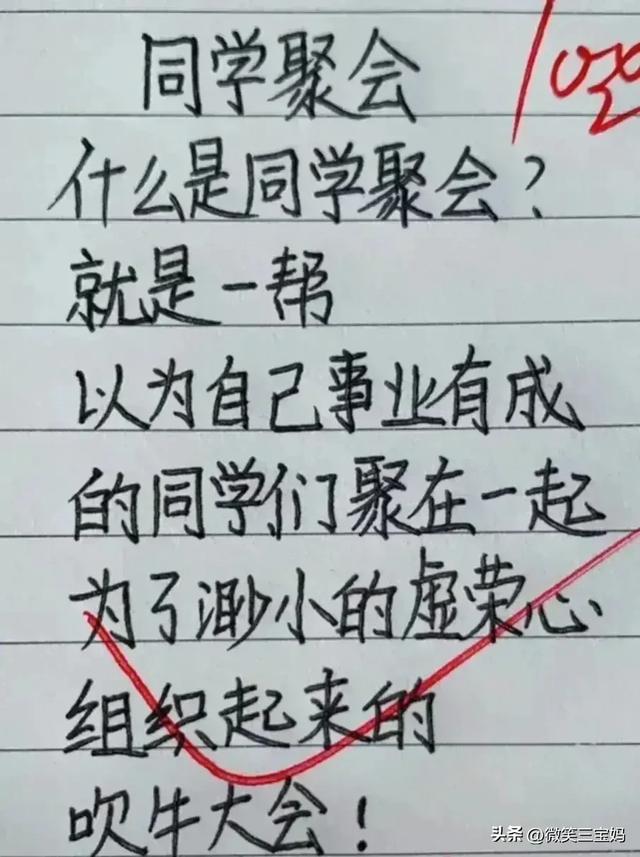 同学聚会
什么是同学聚会？
就是一帮
以为自己事业有成
的同学们聚在一起
为了渺小的虚荣心
组织起来的
吹牛大会！
头条 @微笑三宝妈